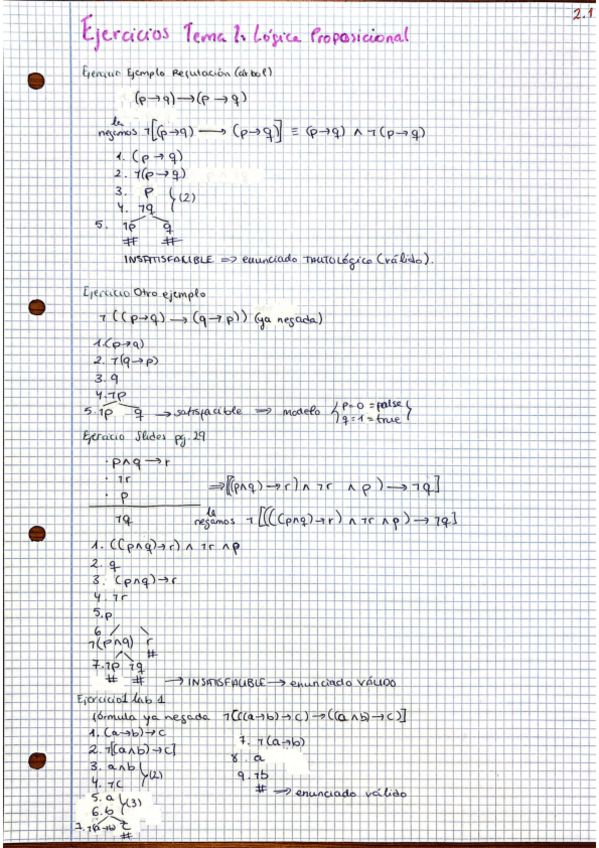 2.1
Ejercicios Tema 1: Lógica Proposicional
Ejercicio Ejemplo Refutación (árbol)
(p→q)→(p→q)
la
negamos ¬[(p→q) → (p→q)] ≡ (p→q) ∧ ¬(p→q)
1. (p→q)
2. ¬(p→q)
3. p
4. ¬q } (2)
5. ¬p q
# #
INSATISFACIBLE => enunciado TAUTOlógico (válido).
Ejercicio Otro ejemplo
¬((p→q) → (q→p)) (ya negada)
1. (p→q)
2. ¬(q→p)
3. q
4. ¬p
5. ¬p q → satisfacible => modelo { p=0 = false
q=1 = true }
Ejercicio Slides pg. 29
· p∧q → r
· ¬r
· p
=> [((p∧q)→r) ∧ ¬r ∧ p) → ¬q]
¬q
la
negamos ¬[(((p∧q)→r) ∧ ¬r ∧ p) → ¬q]
1. ((p∧q)→r) ∧ ¬r ∧ p
2. q
3. (p∧q)→r
4. ¬r
5. p
6
¬(p∧q) r
#
7. ¬p ¬q
# # → INSATISFACIBLE → enunciado VÁLIDO
Ejercicio1 lab 1
fórmula ya negada ¬[((a→b)→c)→((a∧b)→c)]
1. (a→b)→c
2. ¬[(a∧b)→c]
3. a∧b
4. ¬c } (2)
5. a
6. b } (3)
7. ¬(a→b) c
#
7. ¬(a→b)
8. a
9. ¬b
# → enunciado válido